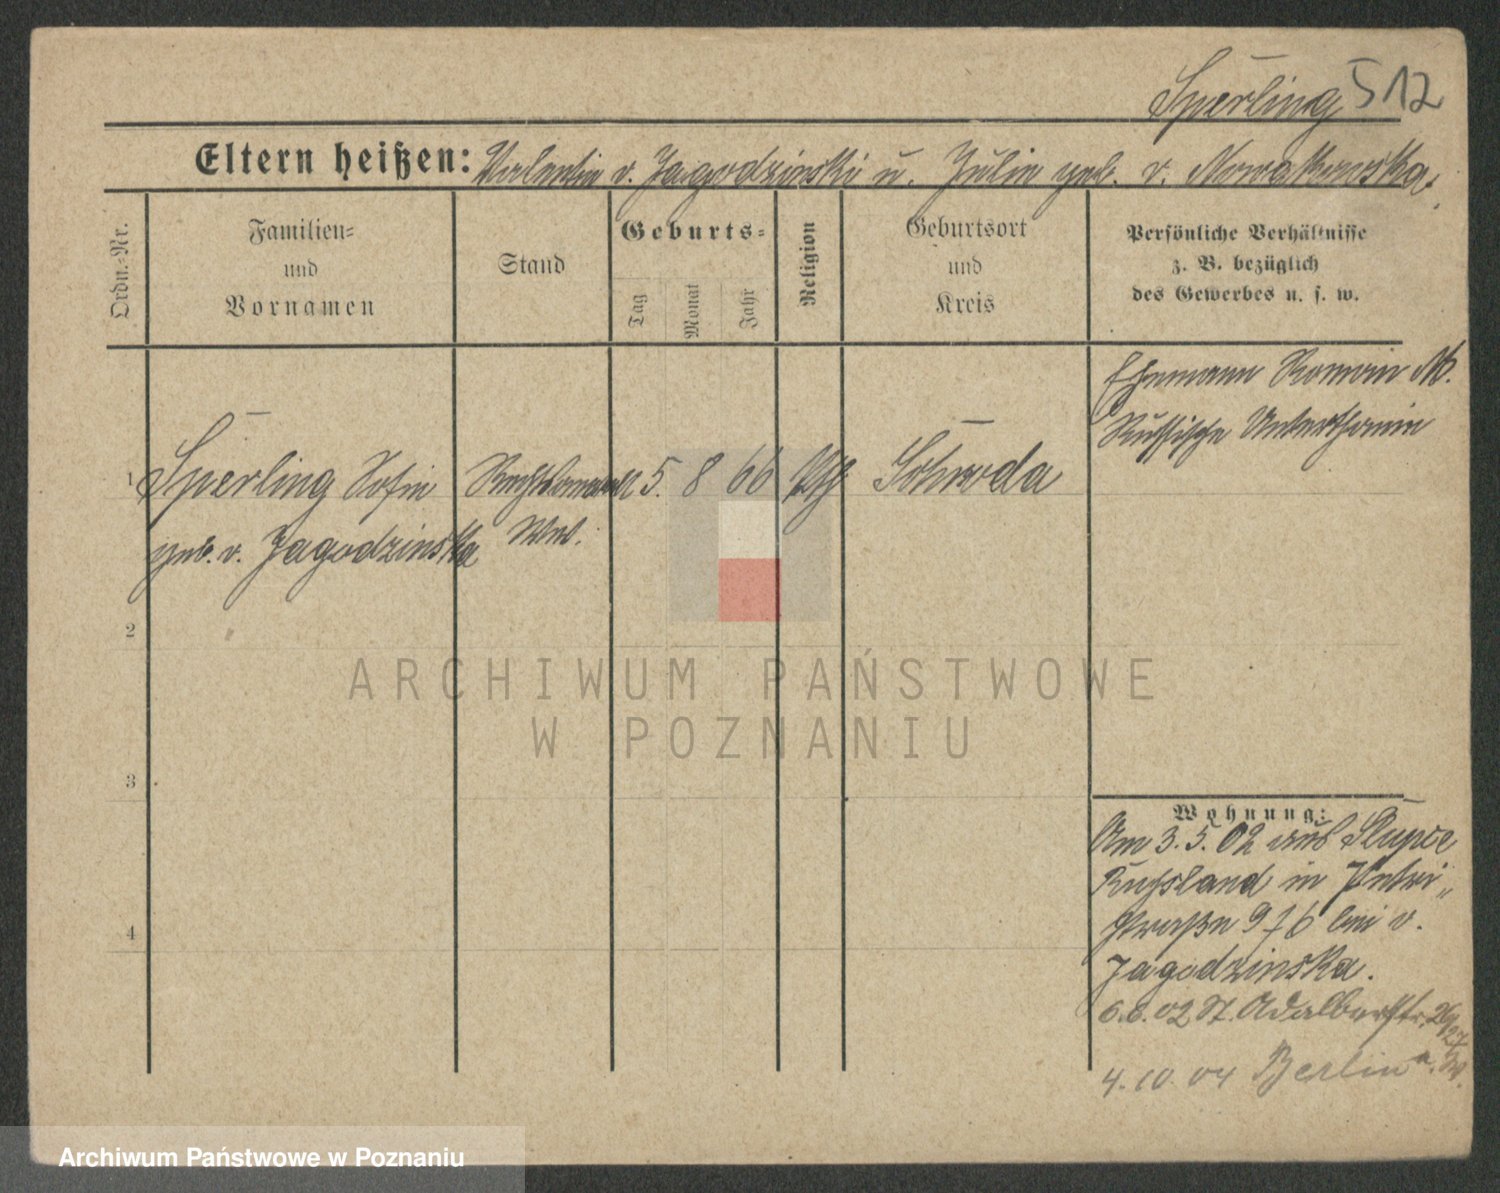 Sperling 512
Eltern heißen: Valentin v. Jagodzinski u. Julie geb. v. Nowakowska.
Ordn.-Nr.
Familien-
und
Vornamen
Stand
Geburts-
Tag
Monat
Jahr
Religion
Geburtsort
und
Kreis
Persönliche Verhältnisse
z. B. bezüglich
des Gewerbes u. s. w.
Ehemann Roman M.
Russische Unterthanin
1 Sperling Sofie 5. 8 66 kth Schroda
geb. v. Jagodzinska Wwe.
2
3
4
Wohnung:
Am 3. 5. 02 aus Slupce
Russland in Petri-
straße 9 bei v.
Jagodzinska.
6.6.02 St. Adalbertstr. 26/27
4. 10. 04 Berlin
ARCHIWUM PAŃSTWOWE
W POZNANIU
Archiwum Państwowe w Poznaniu